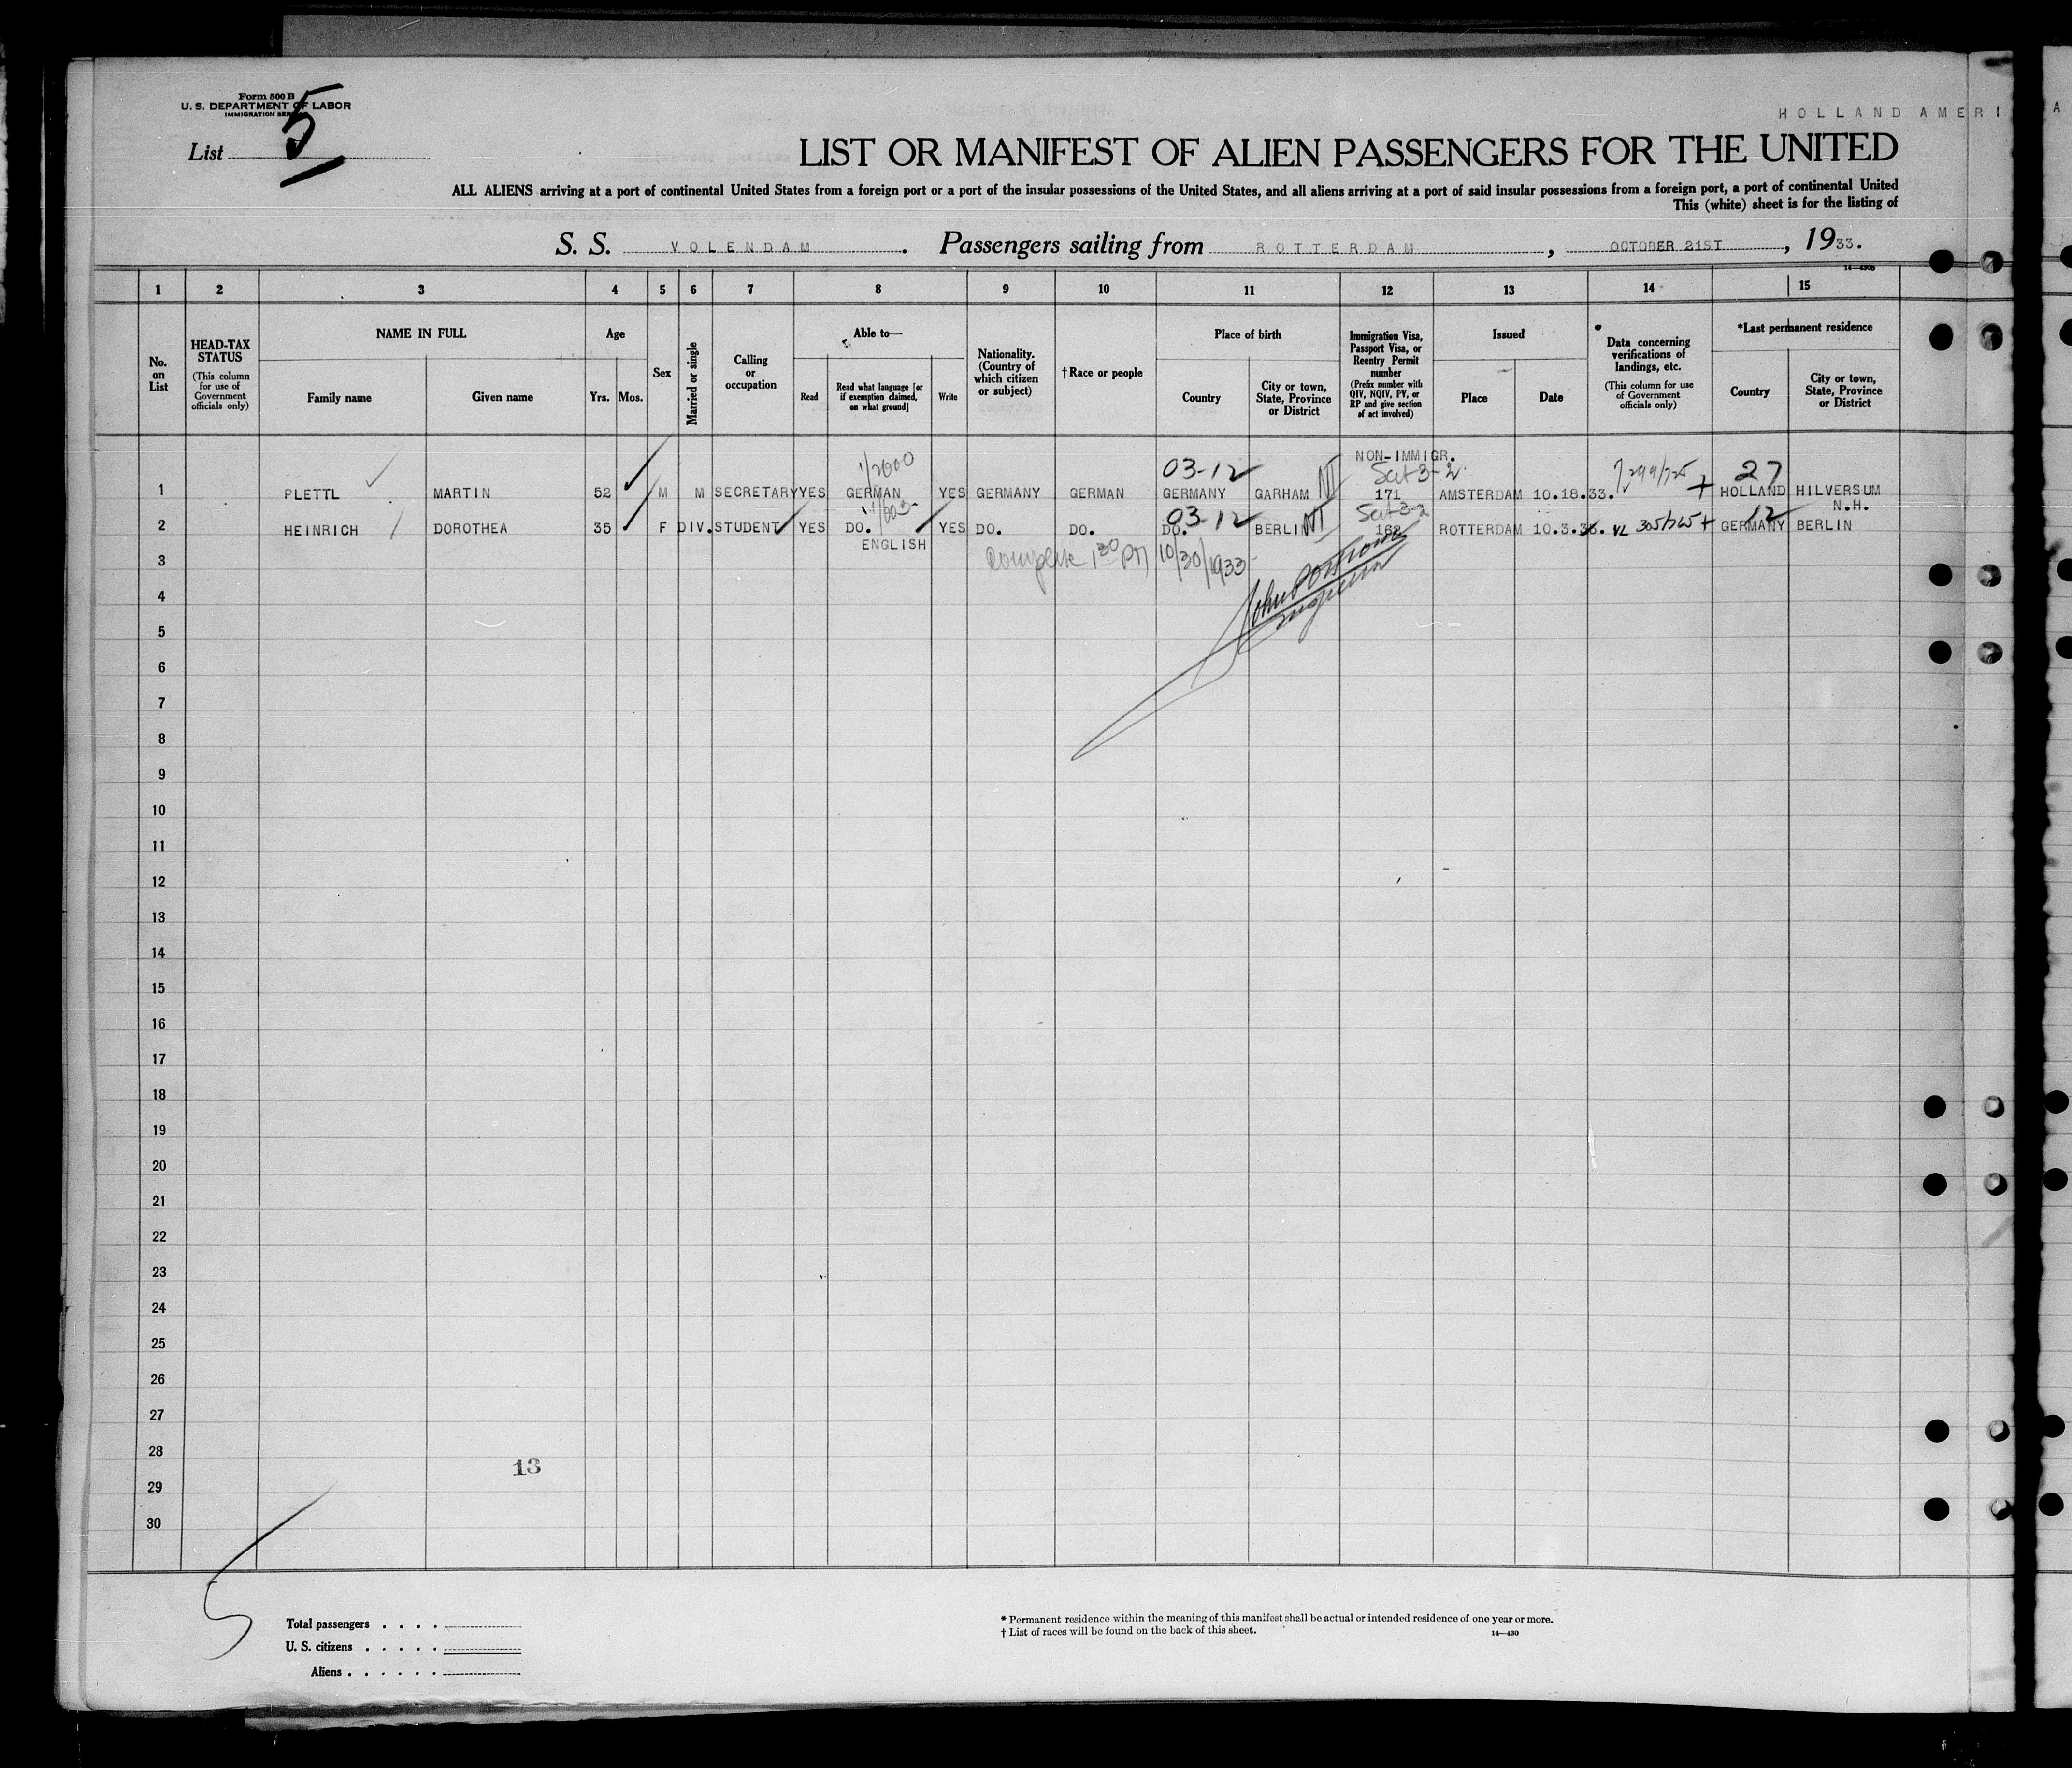 Form 500 B
U. S. DEPARTMENT OF LABOR
IMMIGRATION
List 5
HOLLAND AMERI A
LIST OR MANIFEST OF ALIEN PASSENGERS FOR THE UNITED
ALL ALIENS arriving at a port of continental United States from a foreign port or a port of the insular possessions of the United States, and all aliens arriving at a port of said insular possessions from a foreign port, a port of continental United
This (white) sheet is for the listing of
S. S. VOLENDAM. Passengers sailing from ROTTERDAM, OCTOBER 21ST, 1933.
1 2 3 4 5 6 7 8 9 10 11 12 13 14 15
No. on List
HEAD-TAX STATUS (This column for use of Government officials only)
NAME IN FULL
Family name
Given name
Age
Yrs. Mos.
Sex
Married or single
Calling or occupation
Able to—
Read
Read what language [or if exemption claimed, on what ground]
Write
Nationality. (Country of which citizen or subject)
†Race or people
Place of birth
Country
City or town, State, Province or District
Immigration Visa, Passport Visa, or Reentry Permit number (Prefix number with QIV, NQIV, PV, or RP and give section of act involved)
Issued
Place
Date
Data concerning verifications of landings, etc. (This column for use of Government officials only)
*Last permanent residence
Country
City or town, State, Province or District
NON-IMMIGR.
03-12 27
1 PLETTL MARTIN 52 M M SECRETARY YES GERMAN YES GERMANY GERMAN GERMANY GARHAM 171 AMSTERDAM 10.18.33. HOLLAND HILVERSUM
N.H.
03-12 12
2 HEINRICH DOROTHEA 35 F DIV. STUDENT YES DO. YES DO. DO. DO. BERLIN ROTTERDAM 10.3. 305/765 + GERMANY BERLIN
ENGLISH
1 30 PM 10/30/1933
3
4
5
6
7
8
9
10
11
12
13
14
15
16
17
18
19
20
21
22
23
24
25
26
27
28
13
29
30
5
Total passengers . . . .
U. S. citizens . . . . .
Aliens . . . . . .
* Permanent residence within the meaning of this manifest shall be actual or intended residence of one year or more.
† List of races will be found on the back of this sheet.
14—430